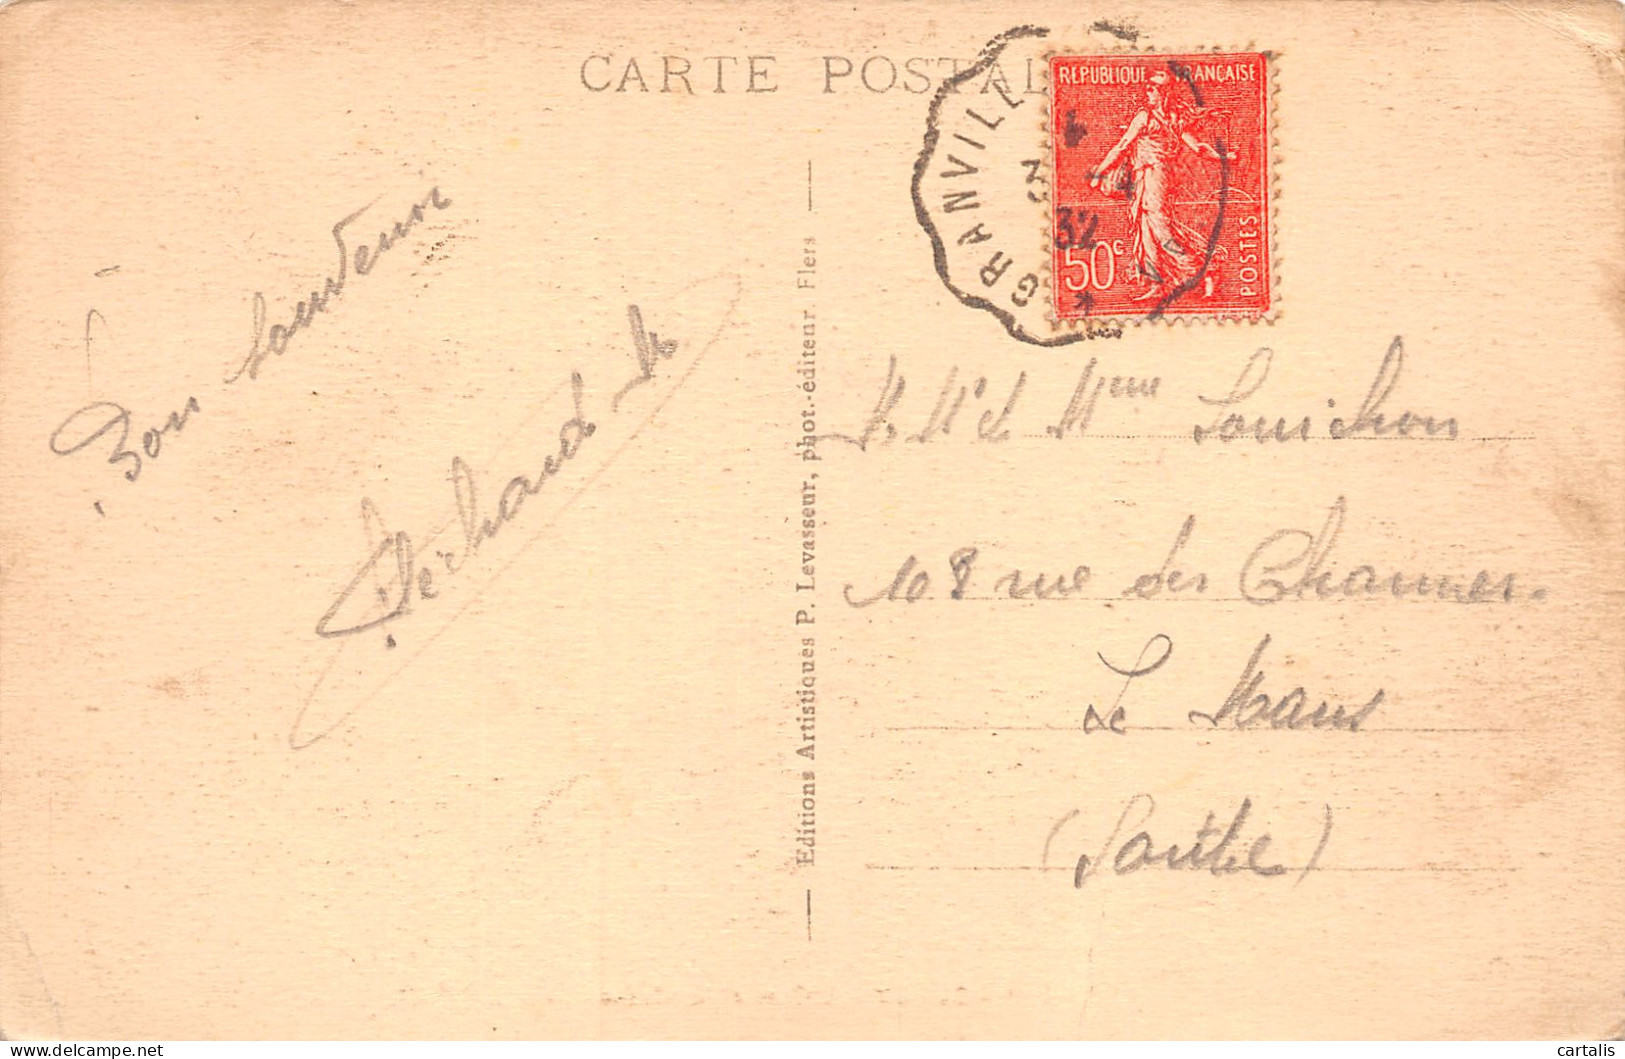 CARTE POSTAL
REPUBLIQUE FRANÇAISE
50c
POSTES
GRANVILL
4
3 -4
32
Bon Souvenir
Editions Artistiques P. Levasseur, phot.-éditeur. Flers
Mme
108 rue des
Le Mans
(Sarthe)
delcampe.net
cartalis